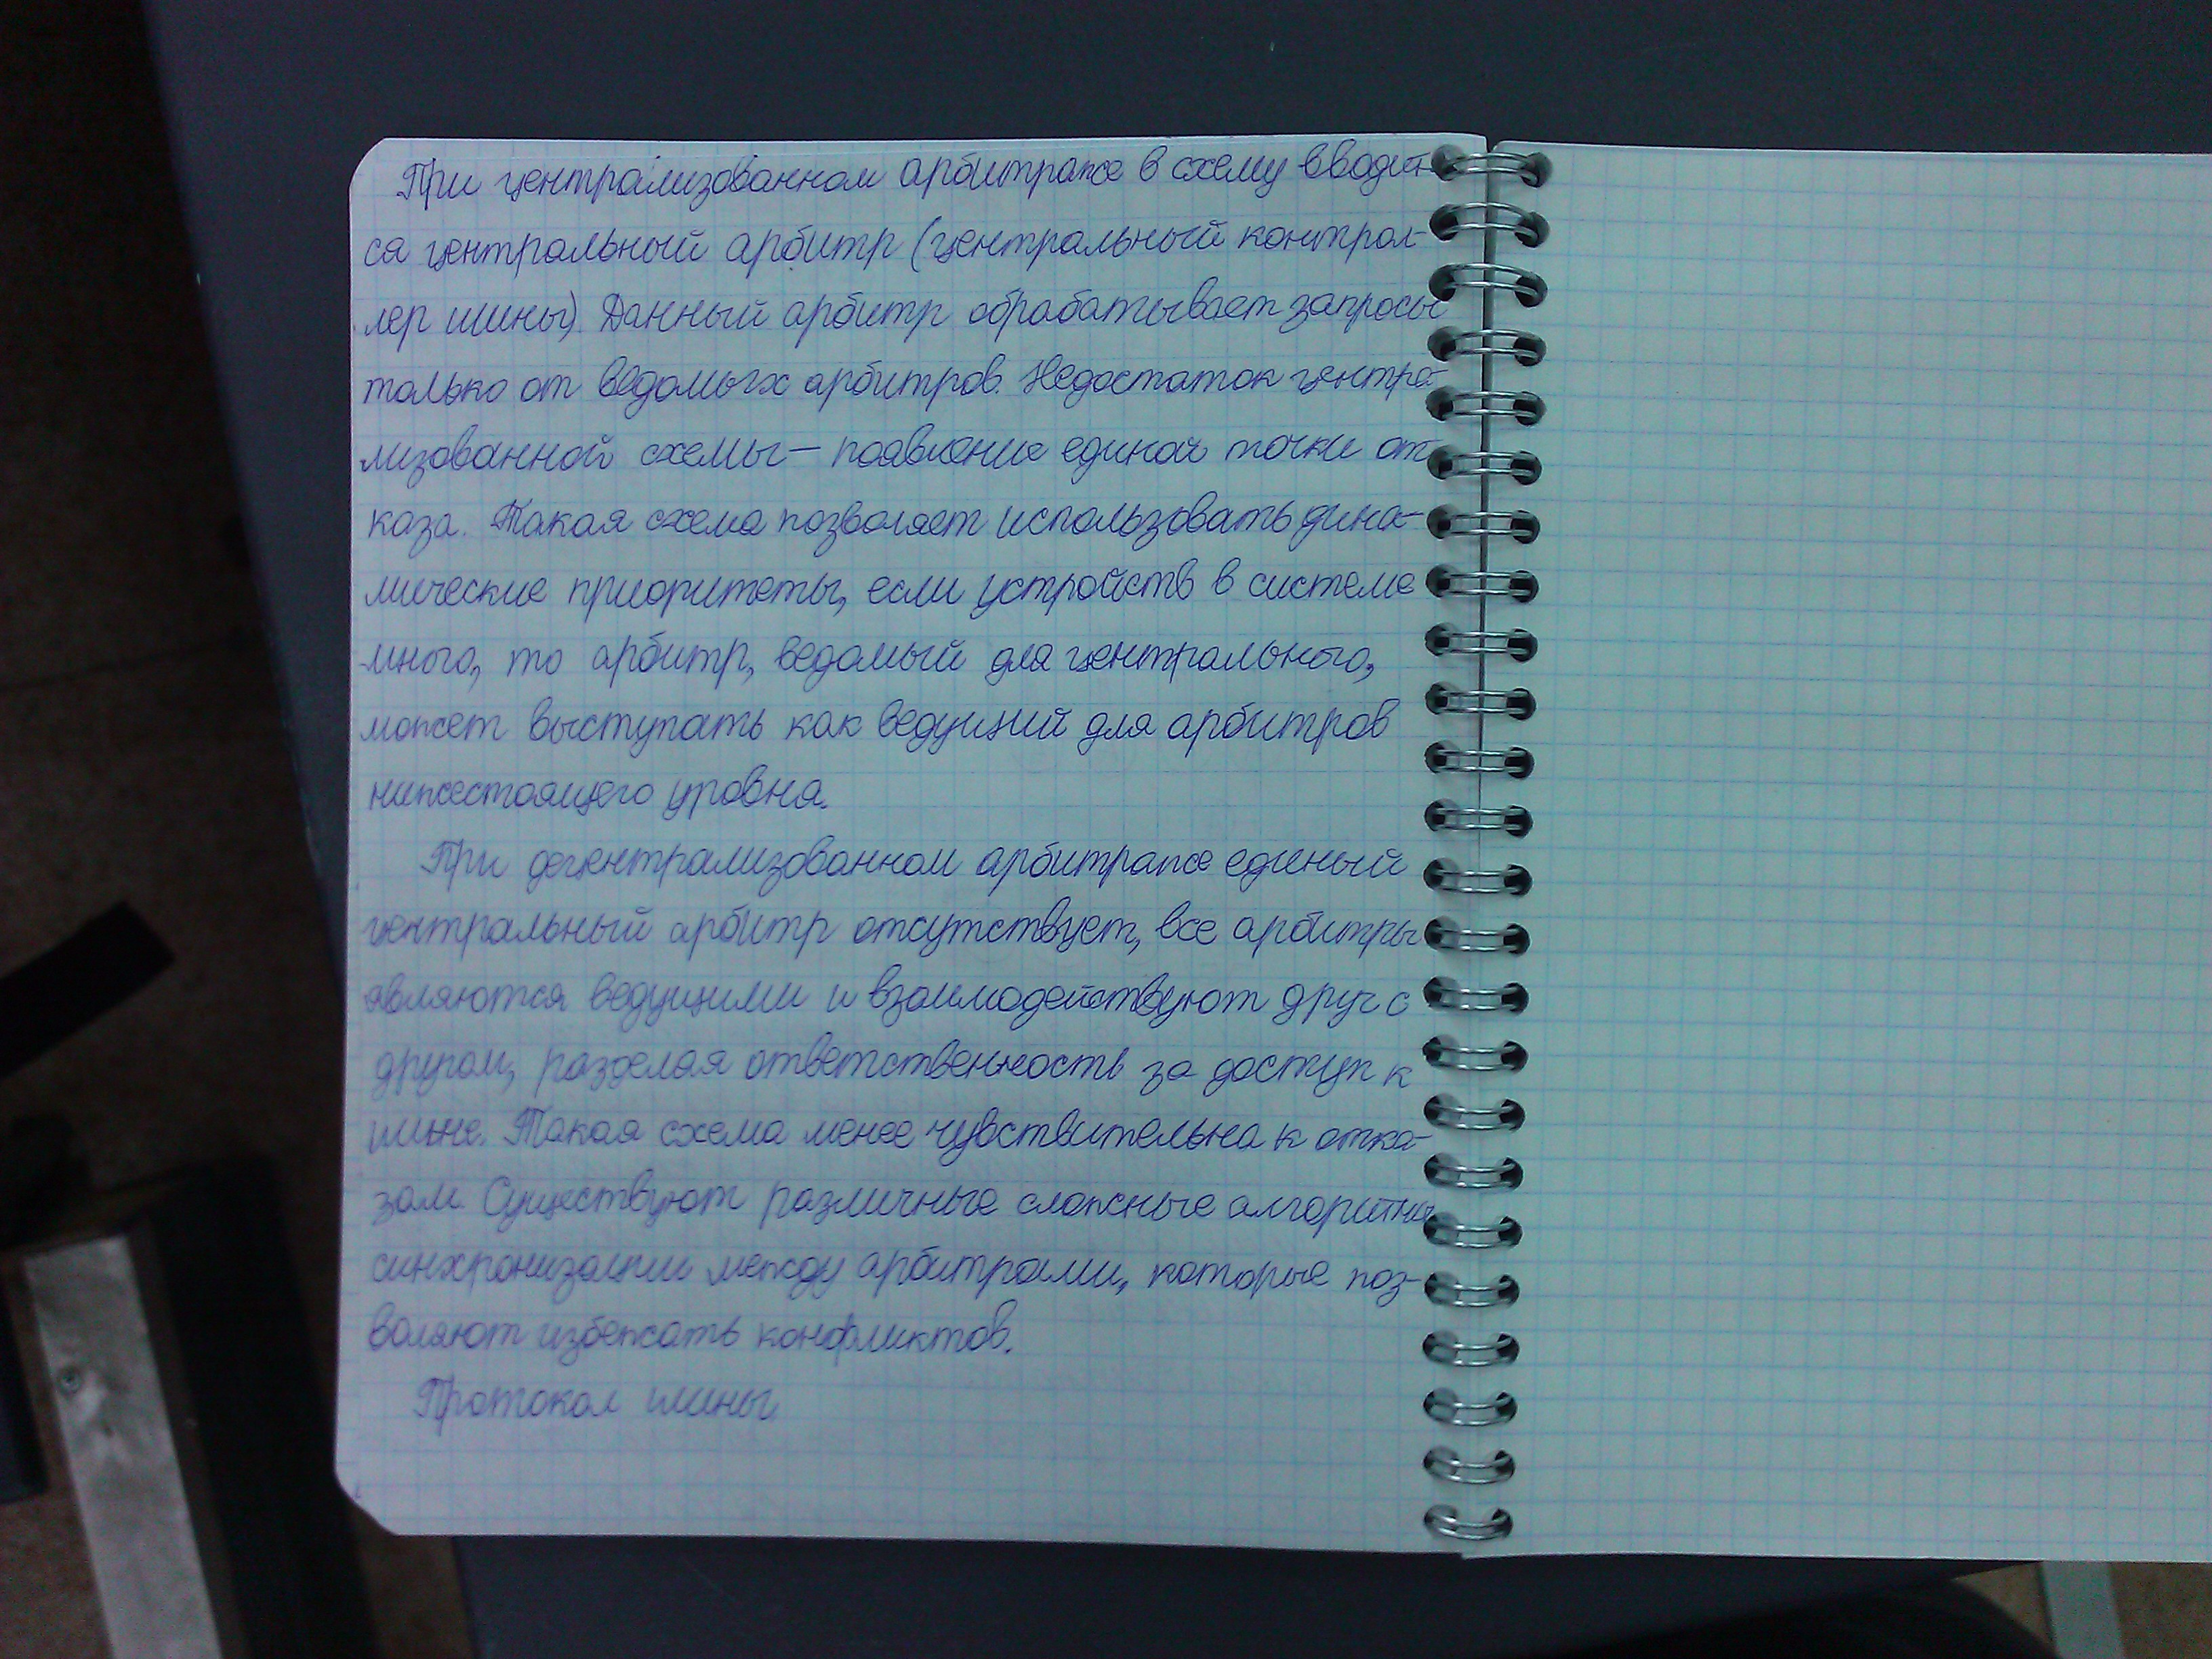 При централизованном арбитраже в схему вводит-
ся центральный арбитр (центральный контрол-
лер шины). Данный арбитр обрабатывает запросы
только от ведомых арбитров. Недостаток центра-
лизованной схемы — появление единой точки от-
каза. Такая схема позволяет использовать дина-
мические приоритеты, если устройств в системе
много, то арбитр, ведомый для центрального,
может выступать как ведущий для арбитров
нижестоящего уровня.
При децентрализованном арбитраже единый
центральный арбитр отсутствует, все арбитры
являются ведущими и взаимодействуют друг с
другом, разделяя ответственность за доступ к
шине. Такая схема менее чувствительна к отка-
зам. Существуют различные сложные алгоритмы
синхронизации между арбитрами, которые поз-
воляют избежать конфликтов.
Протокол шины